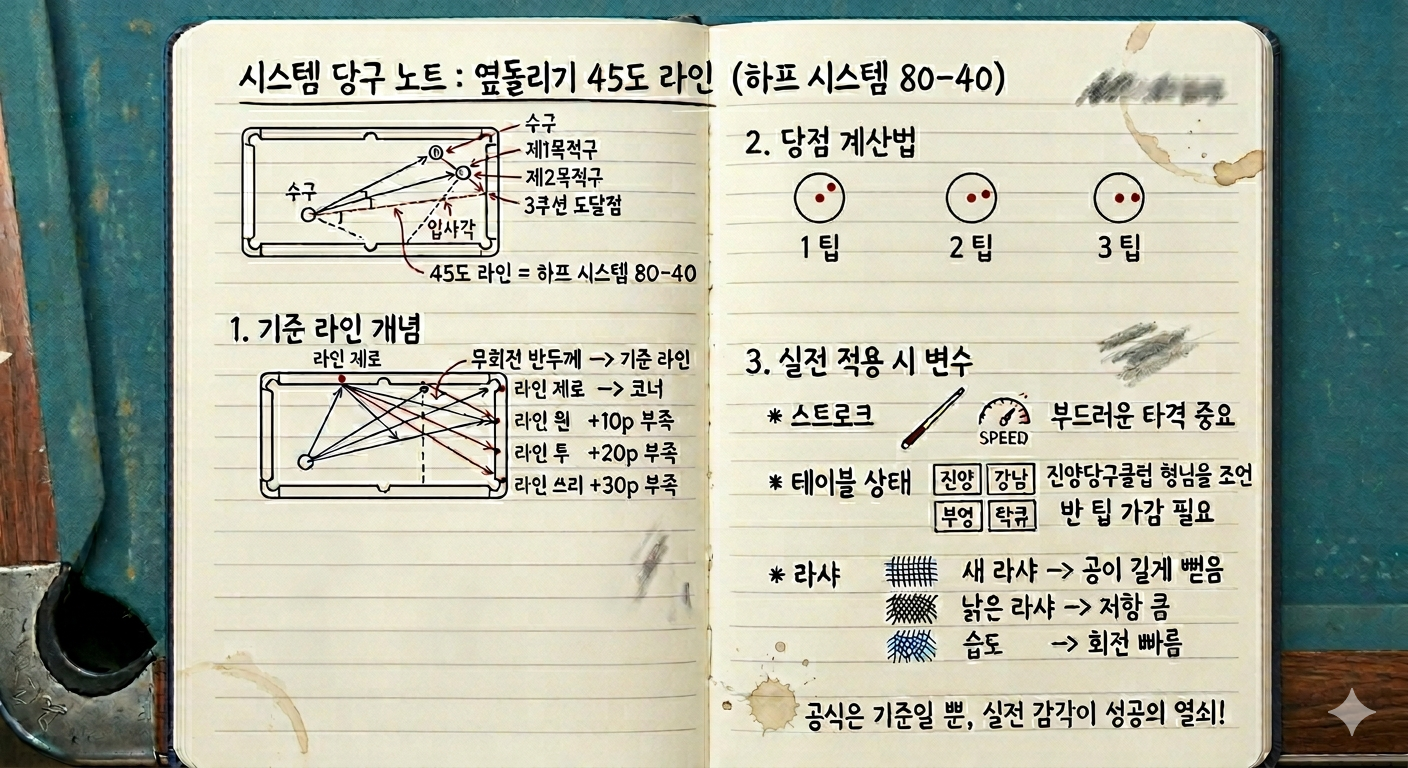 시스템 당구 노트 : 옆돌리기 45도 라인 (하프 시스템 80-40)
수구
제1목적구
제2목적구
3쿠션 도달점
수구
입사각
45도 라인 = 하프 시스템 80-40
1. 기준 라인 개념
라인 제로
무회전 반두께 → 기준 라인
라인 제로 → 코너
라인 원 +10p 부족
라인 투 +20p 부족
라인 쓰리 +30p 부족
2. 당점 계산법
1 팁
2 팁
3 팁
3. 실전 적용 시 변수
* 스트로크 SPEED 부드러운 타격 중요
* 테이블 상태 진양 강남 진양당구클럽 형님을 조언
부엉 탁큐 반 팁 가감 필요
* 라샤 새 라샤 → 공이 길게 뻗음
낡은 라샤 → 저항 큼
습도 → 회전 빠름
공식은 기준일 뿐, 실전 감각이 성공의 열쇠!